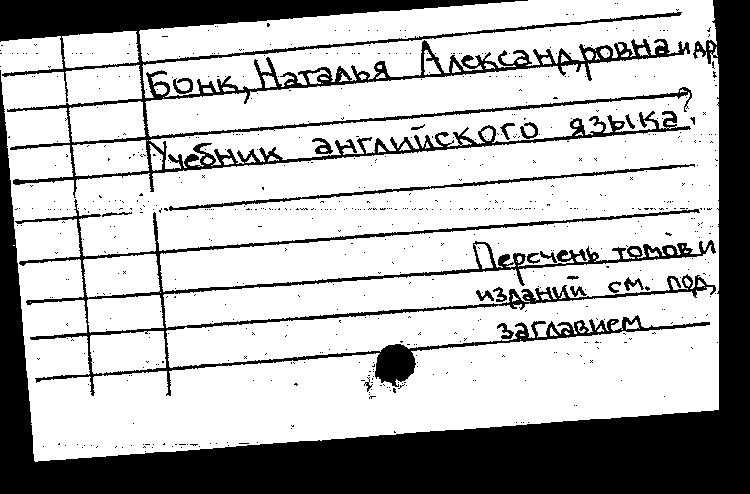 Бонк, Наталья Александровна и др
Учебник английского языка?.
Перечень томов и
изданий см. под
заглавием.